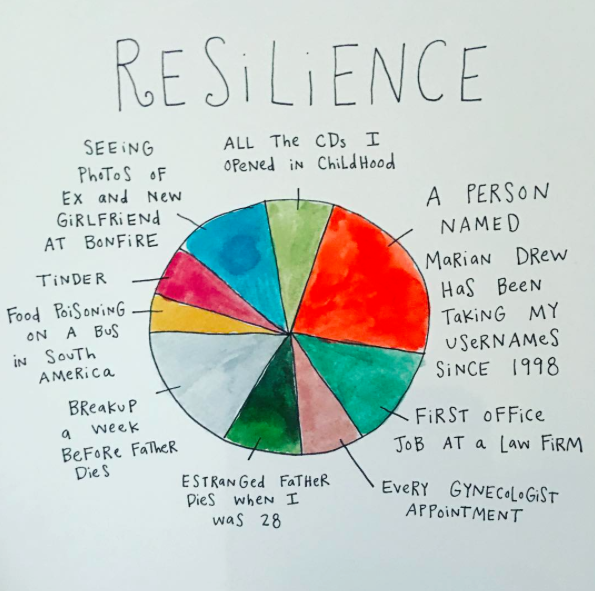 RESiLiENCE
SEEiNG
PhoToS OF
EX and NEW
GiRLFRiEND
AT BONFiRE
ALL The CDs I
OPeNeD iN ChiLDHooD
A PERSON
NAMED
MaRiaN DReW
HaS BeeN
TaKiNG MY
USeRNaMeS
SiNCE 1998
TiNDER
Food PoiSoNiNG
ON a BuS
iN SouTh
AMeRiCa
FiRST OFFiCE
JoB AT a Law FiRM
BReaKuP
a week
BeFoRe FaTHeR
DieS
ESTRaNGeD FaTHeR
DieS wheN I
waS 28
EVeRY GYNeCoLoGiST
APPoiNTMENT